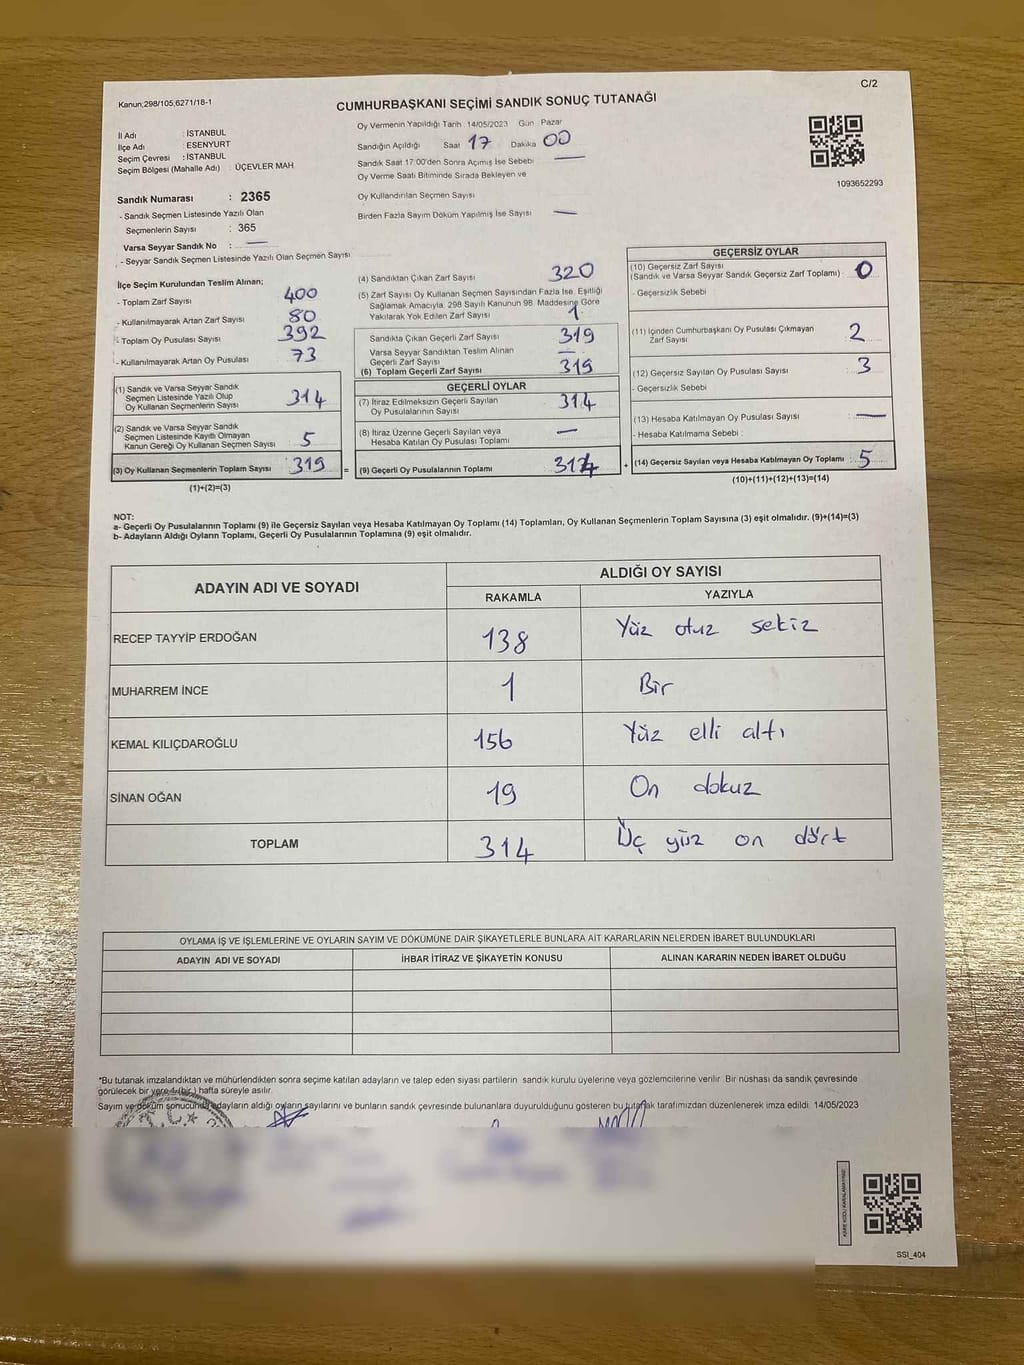 C/2
Kanun;298/105,6271/18-1
CUMHURBAŞKANI SEÇİMİ SANDIK SONUÇ TUTANAĞI
İl Adı : İSTANBUL
İlçe Adı : ESENYURT
Seçim Çevresi : İSTANBUL
Seçim Bölgesi (Mahalle Adı) : ÜÇEVLER MAH
Sandık Numarası : 2365
- Sandık Seçmen Listesinde Yazılı Olan
Seçmenlerin Sayısı : 365
Varsa Seyyar Sandık No : —
- Seyyar Sandık Seçmen Listesinde Yazılı Olan Seçmen Sayısı
Oy Vermenin Yapıldığı Tarih 14/05/2023 Gün Pazar
Sandığın Açıldığı Saat 17 Dakika 00
Sandık Saat 17:00'den Sonra Açımış İse Sebebi —
Oy Verme Saati Bitiminde Sırada Bekleyen ve
Oy Kullandırılan Seçmen Sayısı
Birden Fazla Sayım Döküm Yapılmış İse Sayısı —
1093652293
İlçe Seçim Kurulundan Teslim Alınan;
- Toplam Zarf Sayısı 400
- Kullanılmayarak Artan Zarf Sayısı 80
- Toplam Oy Pusulası Sayısı 392
- Kullanılmayarak Artan Oy Pusulası 73
(1) Sandık ve Varsa Seyyar Sandık
Seçmen Listesinde Yazılı Olup
Oy Kullanan Seçmenlerin Sayısı 314
(2) Sandık ve Varsa Seyyar Sandık
Seçmen Listesinde Kayıtlı Olmayan
Kanun Gereği Oy Kullanan Seçmen Sayısı 5
(3) Oy Kullanan Seçmenlerin Toplam Sayısı 319 =
(1)+(2)=(3)
(4) Sandıktan Çıkan Zarf Sayısı 320
(5) Zarf Sayısı Oy Kullanan Seçmen Sayısından Fazla İse, Eşitliği
Sağlamak Amacıyla, 298 Sayılı Kanunun 98. Maddesine Göre
Yakılarak Yok Edilen Zarf Sayısı 1
Sandıkta Çıkan Geçerli Zarf Sayısı 319
Varsa Seyyar Sandıktan Teslim Alınan
Geçerli Zarf Sayısı —
(6) Toplam Geçerli Zarf Sayısı 319
GEÇERLİ OYLAR
(7) İtiraz Edilmeksizin Geçerli Sayılan
Oy Pusulalarının Sayısı 314
(8) İtiraz Üzerine Geçerli Sayılan veya
Hesaba Katılan Oy Pusulası Toplamı —
(9) Geçerli Oy Pusulalarının Toplamı 314 +
GEÇERSİZ OYLAR
(10) Geçersiz Zarf Sayısı
(Sandık ve Varsa Seyyar Sandık Geçersiz Zarf Toplamı) 0
- Geçersizlik Sebebi
(11) İçinden Cumhurbaşkanı Oy Pusulası Çıkmayan
Zarf Sayısı 2
(12) Geçersiz Sayılan Oy Pusulası Sayısı 3
- Geçersizlik Sebebi
(13) Hesaba Katılmayan Oy Pusulası Sayısı —
- Hesaba Katılmama Sebebi :
(14) Geçersiz Sayılan veya Hesaba Katılmayan Oy Toplamı : 5
(10)+(11)+(12)+(13)=(14)
NOT:
a- Geçerli Oy Pusulalarının Toplamı (9) ile Geçersiz Sayılan veya Hesaba Katılmayan Oy Toplamı (14) Toplamları, Oy Kullanan Seçmenlerin Toplam Sayısına (3) eşit olmalıdır. (9)+(14)=(3)
b- Adayların Aldığı Oyların Toplamı, Geçerli Oy Pusulalarının Toplamına (9) eşit olmalıdır.
ADAYIN ADI VE SOYADI ALDIĞI OY SAYISI
RAKAMLA YAZIYLA
RECEP TAYYİP ERDOĞAN 138 Yüz otuz sekiz
MUHARREM İNCE 1 Bir
KEMAL KILIÇDAROĞLU 156 Yüz elli altı
SİNAN OĞAN 19 On dokuz
TOPLAM 314 Üç yüz on dört
OYLAMA İŞ VE İŞLEMLERİNE VE OYLARIN SAYIM VE DÖKÜMÜNE DAİR ŞİKAYETLERLE BUNLARA AİT KARARLARIN NELERDEN İBARET BULUNDUKLARI
ADAYIN ADI VE SOYADI İHBAR İTİRAZ VE ŞİKAYETİN KONUSU ALINAN KARARIN NEDEN İBARET OLDUĞU
*Bu tutanak imzalandıktan ve mühürlendikten sonra seçime katılan adayların ve talep eden siyasi partilerin sandık kurulu üyelerine veya gözlemcilerine verilir. Bir nüshası da sandık çevresinde
görülecek bir yere 1 (bir) hafta süreyle asılır.
Sayım ve döküm sonucunda adayların aldığı oyların sayılarını ve bunların sandık çevresinde bulunanlara duyurulduğunu gösteren bu tutanak tarafımızdan düzenlenerek imza edildi. 14/05/2023
SSI_404